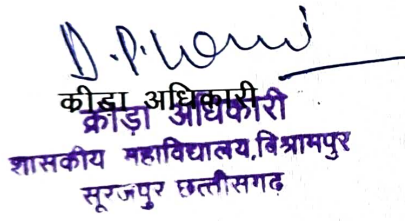 कीडा अधिकारी
क्रीड़ा अधिकारी
शासकीय महाविद्यालय,विश्रामपुर
सूरजपुर छत्तीसगढ़